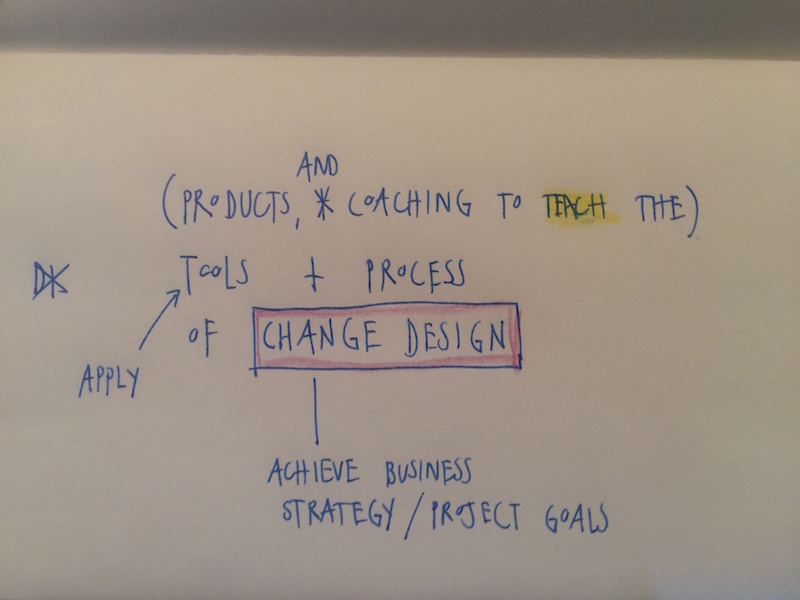 AND
(PRODUCTS, * COACHING TO TEACH THE)
TOOLS + PROCESS
OF CHANGE DESIGN
APPLY
ACHIEVE BUSINESS
STRATEGY / PROJECT GOALS